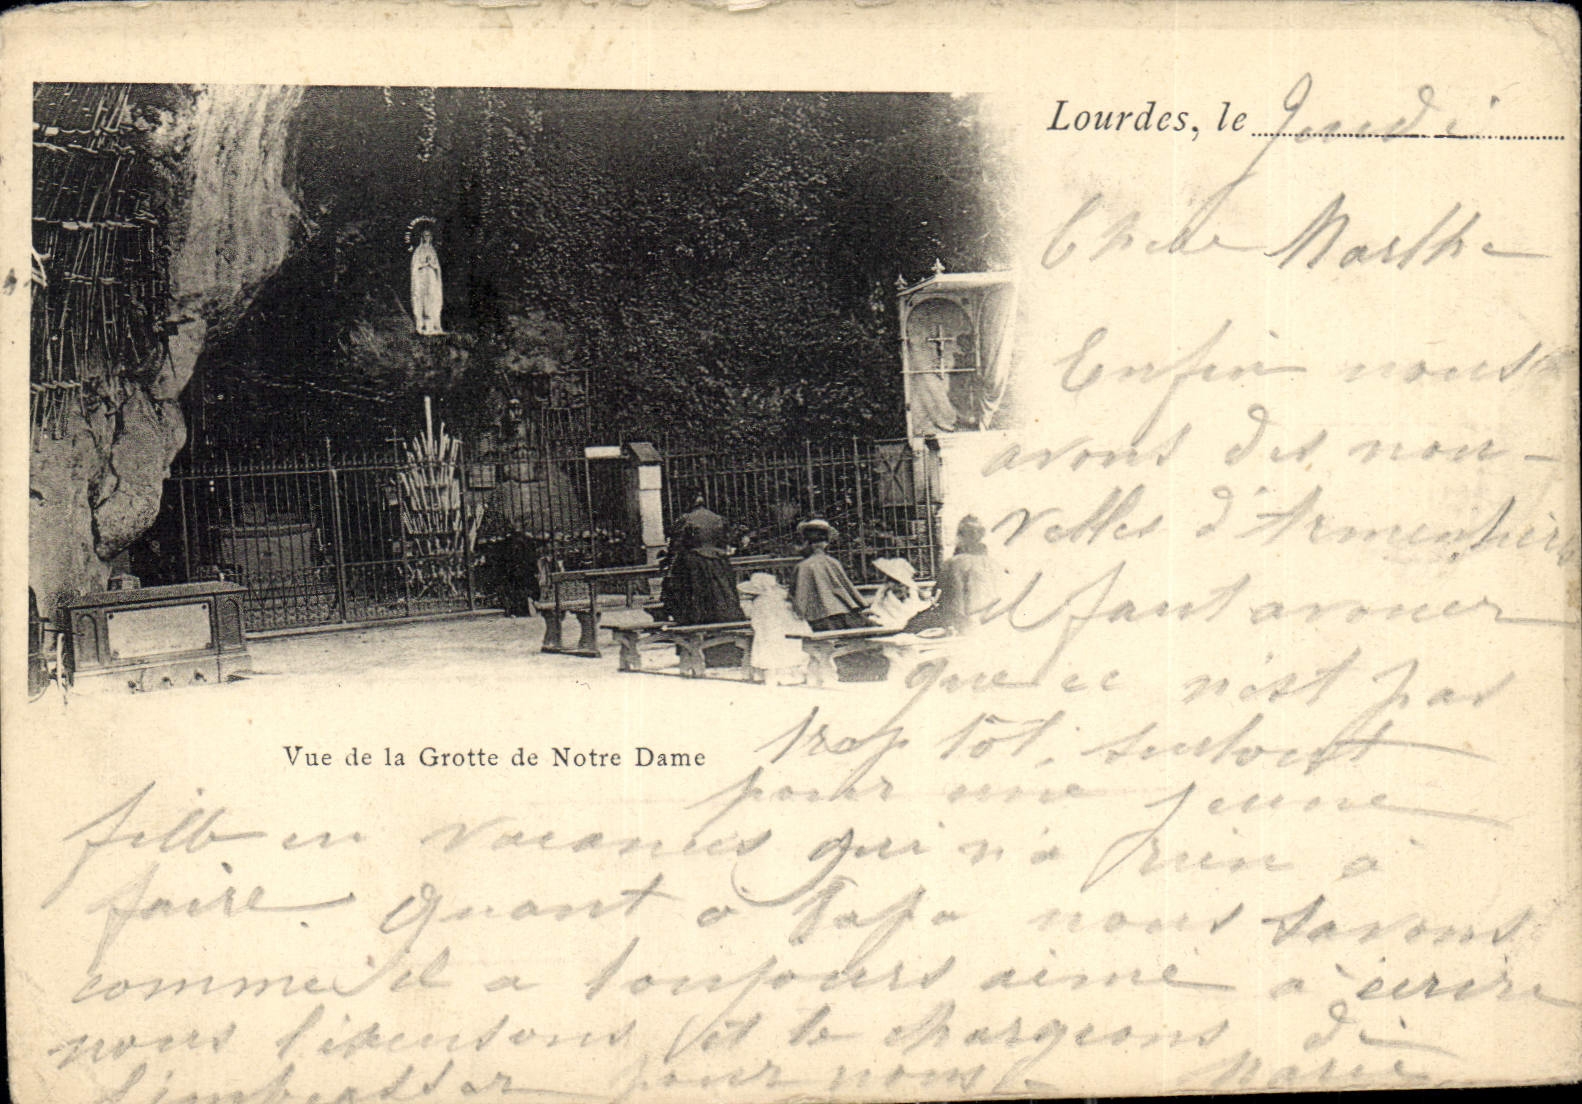 Lourdes, le Jeudi
Chère Marthe
Enfin nous
avons des nou-
velles d'Armentières
il faut avouer
que ce n'est pas
trop tôt, surtout
Vue de la Grotte de Notre Dame
pour une jeune
fille en vacances qui n'a rien à
faire. Quant à Papa nous savons
comme il a toujours aimé à écrire
nous l'excusons et te chargeons de
l'embrasser pour nous. Marie